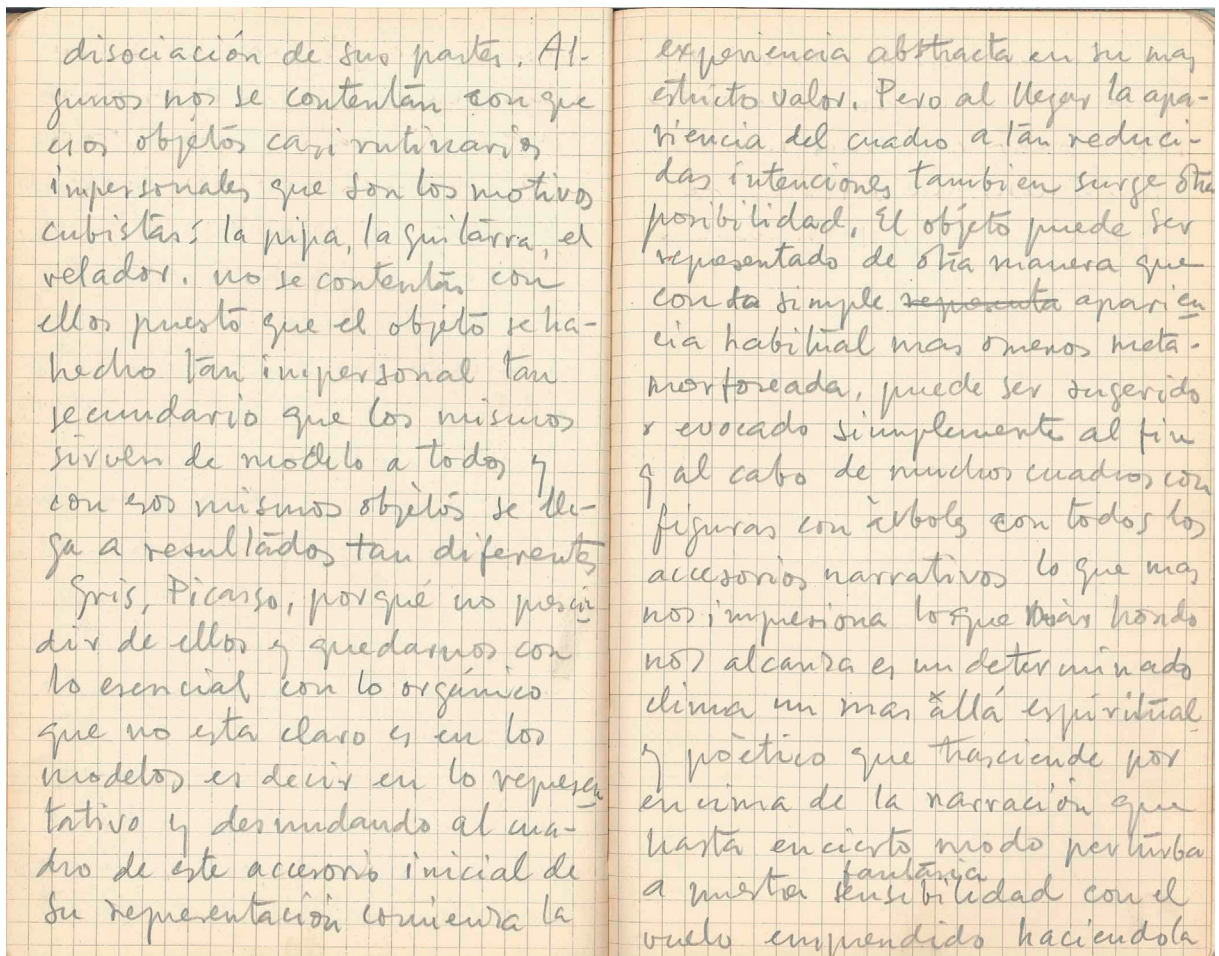 disociación de sus partes. Al-
gunos nos se contentan con que
esos objetos casi rutinarios
impersonales que son los motivos
cubistas: la pipa, la guitarra, el
velador. no se contentan con
ellos puesto que el objeto se ha-
hecho tan impersonal tan
secundario que los mismos
sirven de modelo a todos y
con esos mismos objetos se lle-
ga a resultados tan diferentes
Gris, Picasso, porqué no prescin
dir de ellos y quedarnos con
lo esencial con lo orgánico
que no esta claro es en los
modelos es decir en lo represen
tativo y desnudando al cua-
dro de este accesorio inicial de
su representación comienza la
experiencia abstracta en su mas
estricto valor. Pero al llegar la apa-
riencia del cuadro a tan reduci-
das intenciones tambien surge otra
posibilidad, El objeto puede ser
representado de otra manera que
con la simple representa aparien
cia habitual mas o menos meta-
morfoseada, puede ser sugerido
y evocado simplemente al fin
y al cabo de muchos cuadros con
figuras con árboles con todos los
accesorios narrativos lo que mas
nos impresiona lo que más hondo
nos alcanza es un determinado
clima un mas allá espiritual
y poètico que trasciende por
encima de la narración que
hasta en cierto modo perturba
fantàsia
a nuestra sensibilidad con el
vuelo emprendido haciendola